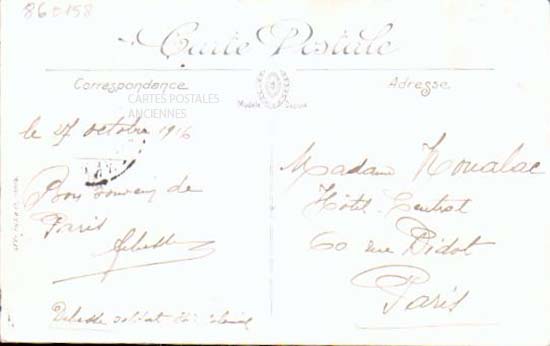 860158
Carte Postale
Correspondance
Adresse
CARTES POSTALES
ANCIENNES
le 27 octobre 1916
Bon souvenir de
Paris
Madame Noualac
Hôtel Central
60 rue Didot
Paris
soldat